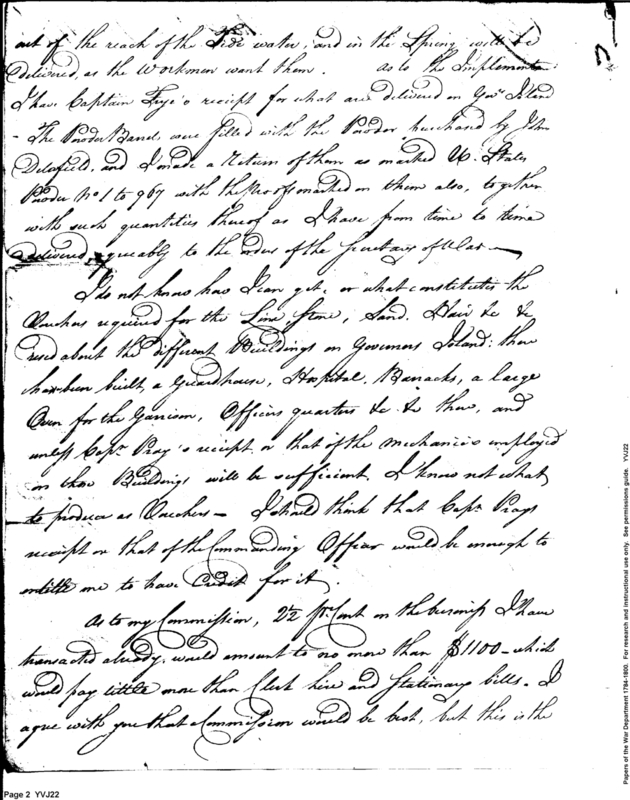 out of the reach of the Tide water, and in the Spring will be
delivered, as the Workmen want them. as to the Implements:
I have Captain Frye's receipt for what are delivered on Govrs Island
- The Powder Barrels were filled with the Powder purchased by John
Delafield, and I made a return of them as marked U. States
Powder No 1 to 967 with the proofs marked on them also, together
with such quantities thereof as I have from time to time
delivered agreeably to the orders of the Secretary of War -
I do not know how I can get, or what constitutes the
Vouchers required for the Lime, Stone, Sand, Hair &c &c
used about the different Buildings on Governors Island: there
has been built, a Guardhouse, Hospital, Barracks, a large
Oven for the Garrison, Officers quarters &c &c there, and
unless Capn Pray's receipt or that of the mechanics employed
on those Buildings will be sufficient, I know not what
to produce as Vouchers - I should think that Capn Prays
receipt or that of the Commanding Officer would be enough to
entitle me to have Credit for it.
As to my Commission, 2½ pr Cent on the business I have
transacted already, would amount to no more than $1100 - which
would pay little more than Clerk hire and Stationary bills. I
agree with you that a Commission would be best, but this is the
Page 2 YVJ22
Papers of the War Department 1784-1800. For research and instructional use only. See permissions guide. YVJ22